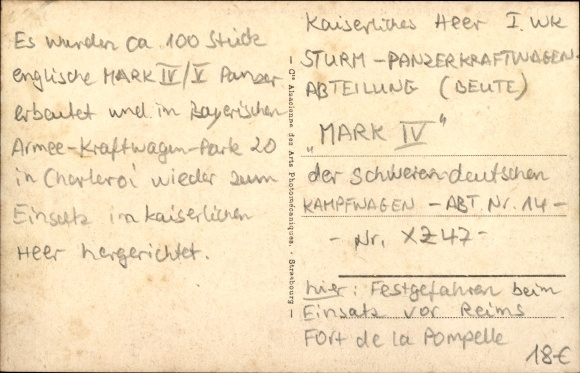 Es wurden ca. 100 Stück
englische MARK IV/V Panzer
erbeutet und im Bayerischen
Armee-Kraftwagen-Park 20
in Charleroi wieder zum
Einsatz im kaiserlichen
Heer hergerichtet.
— Cie Alsacienne des Arts Photomécaniques. - Strasbourg —
Kaiserliches Heer I. WK
STURM-PANZERKRAFTWAGEN-
ABTEILUNG (BEUTE)
„MARK IV“
der Schweren deutschen
KAMPFWAGEN - ABT. Nr. 14 -
- Nr. XZ47 -
hier: Festgefahren beim
Einsatz vor Reims
Fort de la Pompelle
18€